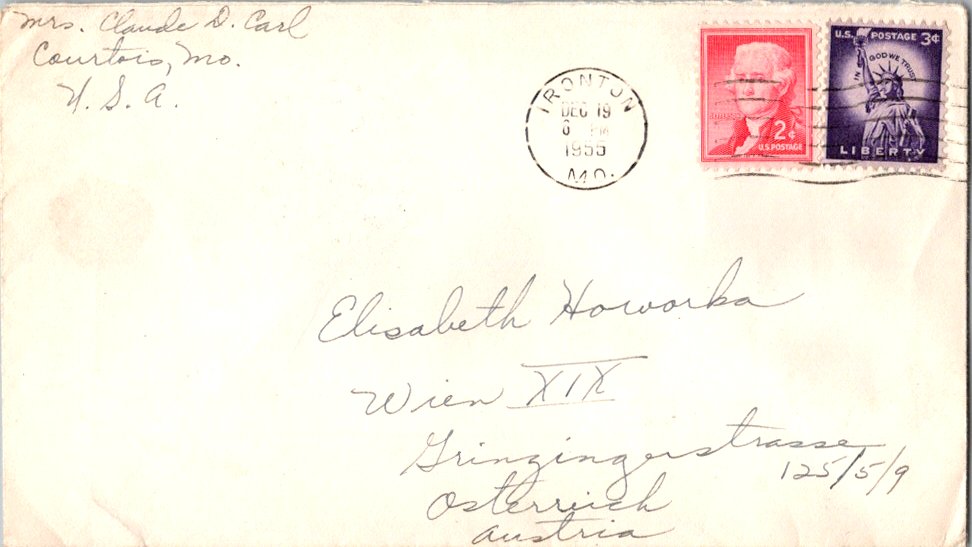 Mrs. Claude D. Carl
Courtois, Mo.
U. S. A.
IRONTON
DEC 19
6 PM
1955
MO.
2¢
U.S. POSTAGE
U.S. POSTAGE 3¢
IN GOD WE TRUST
LIBERTY
Elisabeth Howorka
Wien XIX
Grinzingerstrasse
125/5/9
Osterreich
Austria